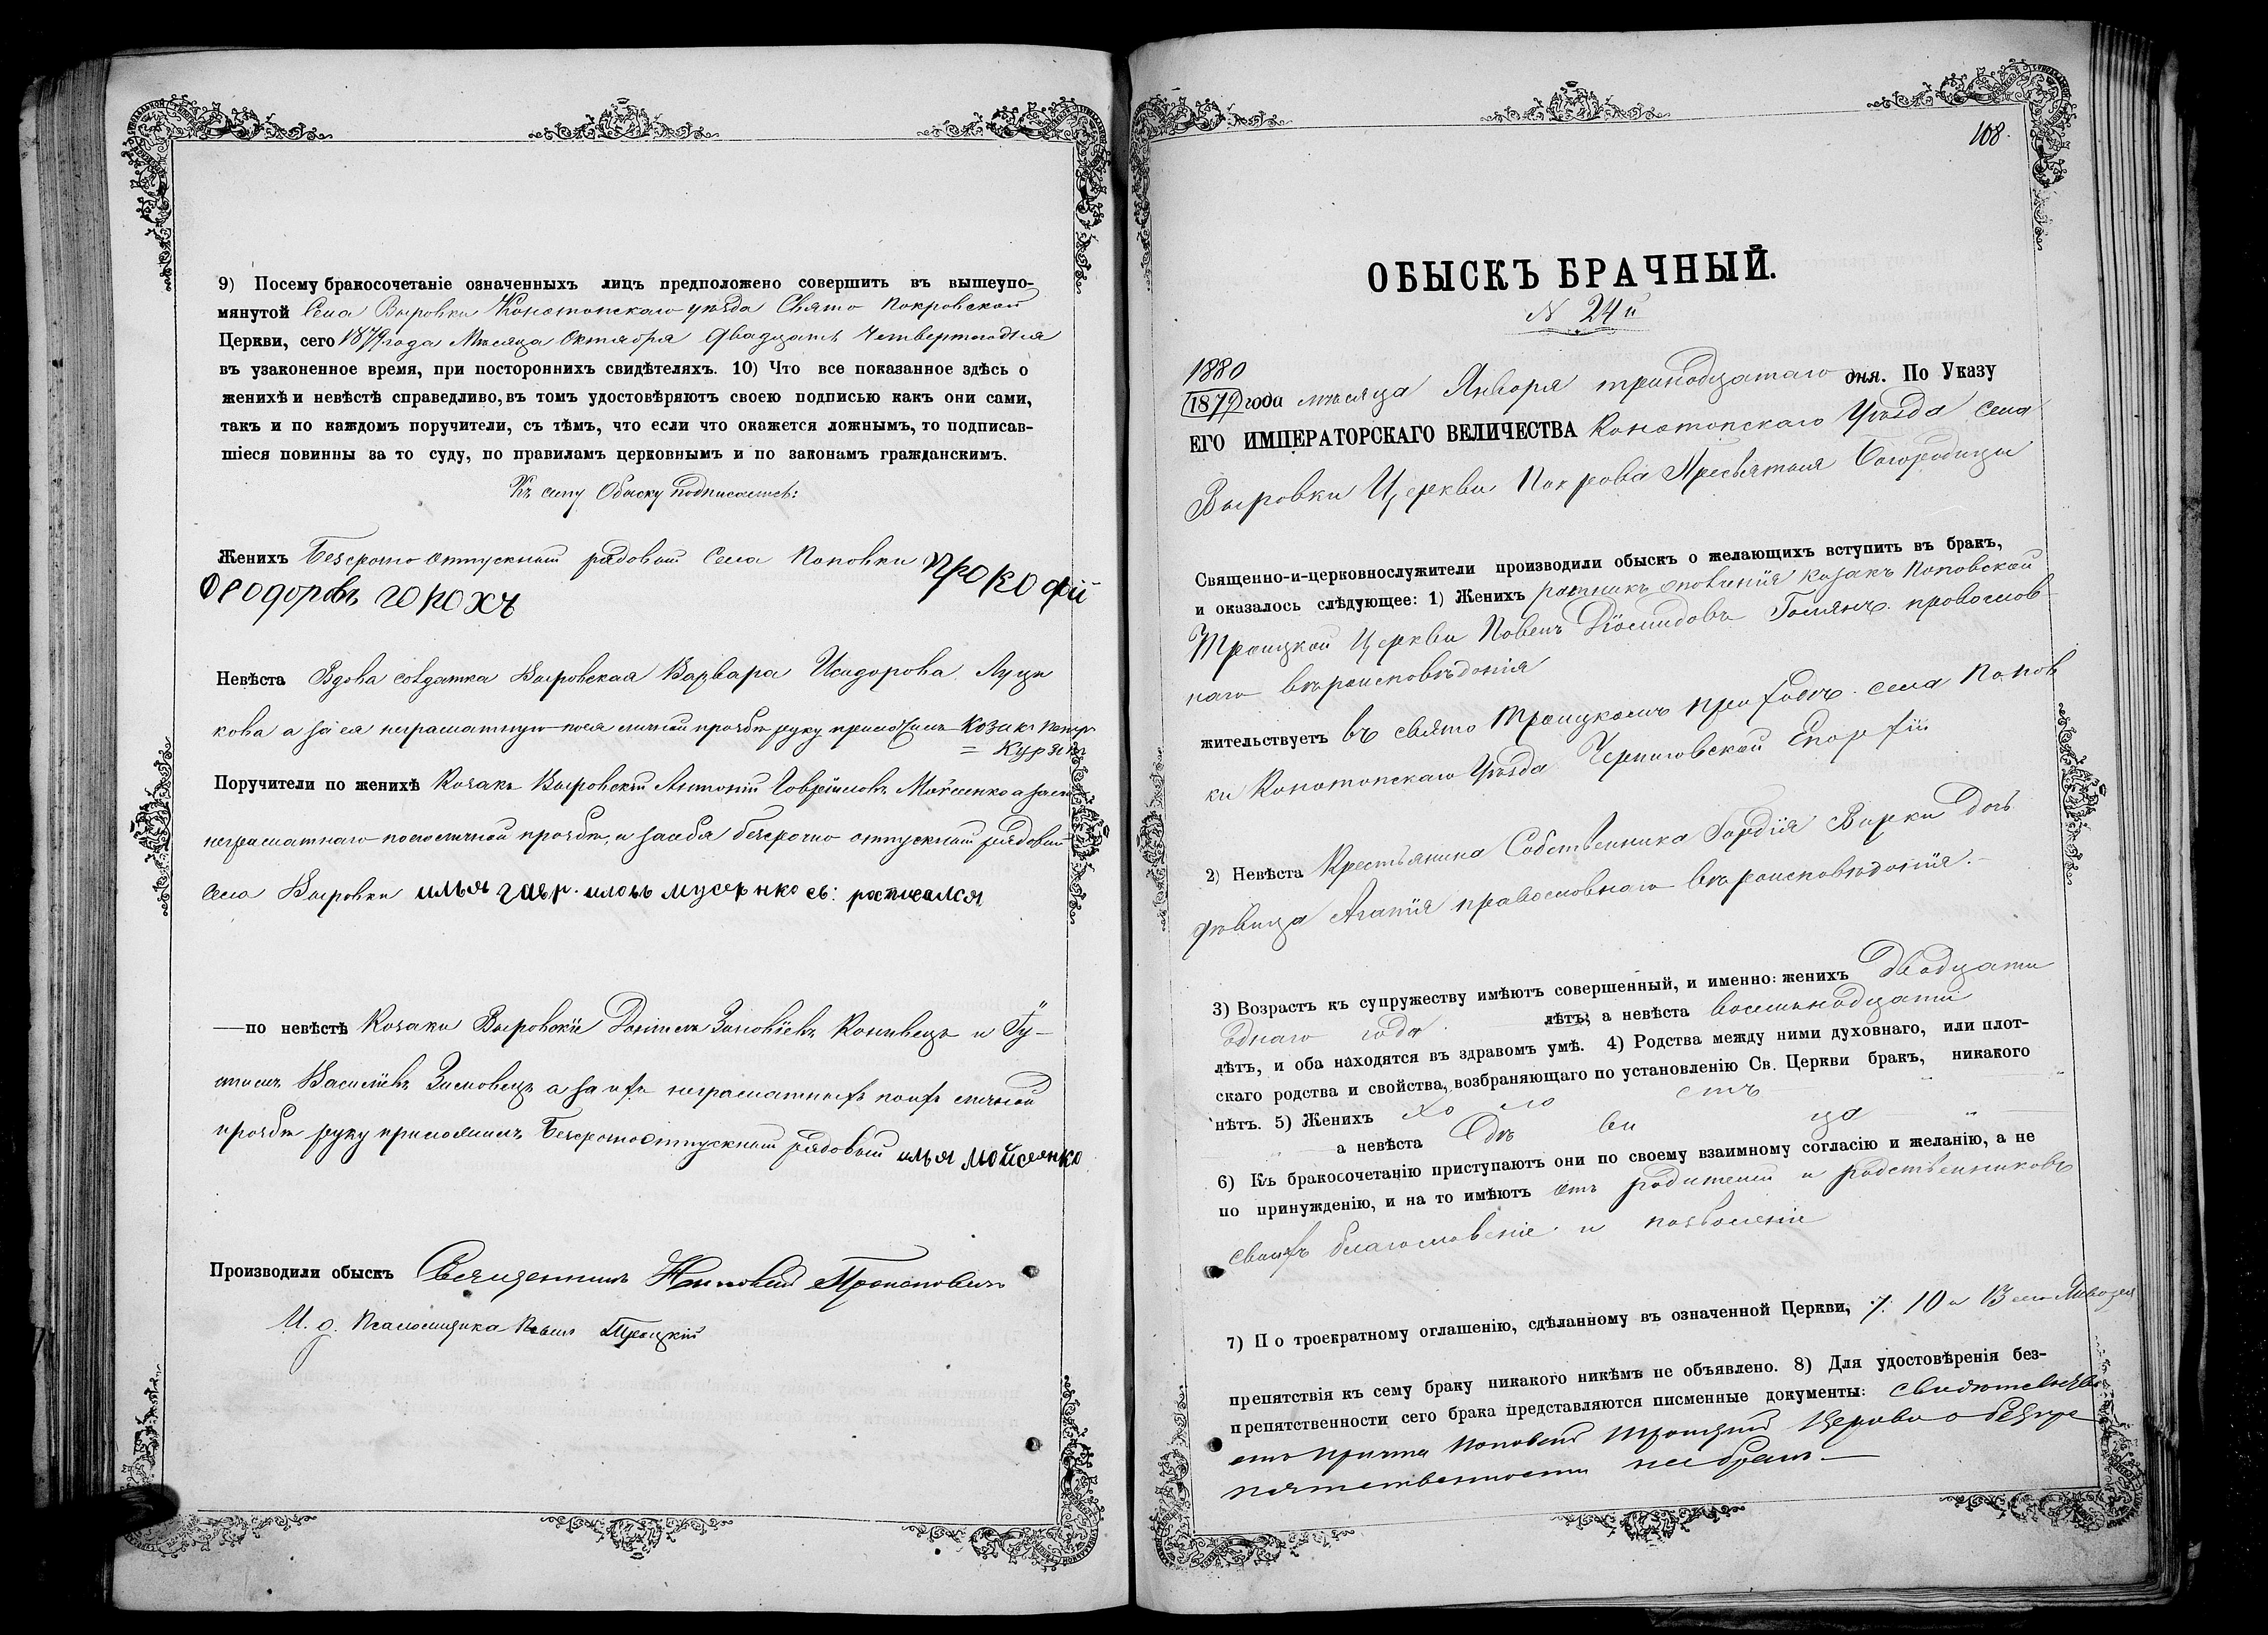 9) Посему бракосочетаніе означенныхъ лицъ предположено совершить въ вышеупо-
мянутой Села Выровки Конотопскаго уѣзда Свято Покровской
Церкви, сего 1879 года Мѣсяца Октября двадцать четвертого дня
въ узаконенное время, при постороннихъ свидѣтеляхъ. 10) Что все показанное здѣсь о
женихѣ и невѣстѣ справедливо, въ томъ удостовѣряютъ своею подписью какъ они сами,
такъ и по каждомъ поручители, съ тѣмъ, что если что окажется ложнымъ, то подписав-
шіеся повинны за то суду, по правиламъ церковнымъ и по законамъ гражданскимъ.
Къ сему Обыску подписались:
Женихъ Безсрочно отпускной рядовой Села Поповки прокофій
Феодоровъ горохъ
Невѣста Вдова солдатка Выровская Варвара Исидорова Луцы
кова а за ея неграматную по ея личной прозбѣ руку приложилъ Козакъ Петръ
= Курян
Поручители по женихѣ Козакъ Выровскій Антоній Гавріиловъ Мойсенко а за его
неграматнаго по его личной прозбѣ, и за себя безсрочно отпускной рядовой
села Выровки илья гавр. иловъ мусеенко съ: росписался
—по невѣстѣ Козаки Выровскіе Даніилъ Зиновіевъ Конивецъ и Гу-
стинъ Василіевъ Зимовецъ а за ихъ неграматныхъ по ихъ личной
прозбѣ руку приложилъ Безсрочноотпускной рядовой илья мойсеенко
Производили обыскъ Священникъ Троянович
И. д. Псаломщика Павелъ Троцкій
108.
ОБЫСКЪ БРАЧНЫЙ.
N 24й
1880
1879 года мѣсяца Января тринадцатаго дня. По Указу
ЕГО ИМПЕРАТОРСКАГО ВЕЛИЧЕСТВА Конотопскаго Уѣзда села
Выровки Церкви Покрова Пресвятыя Богородицы
Священно-и-церковнослужители производили обыскъ о желающихъ вступить въ бракъ,
и оказалось слѣдующее: 1) Женихъ ратникъ ополченія козакъ Поповской
Троицкой Церкви Павелъ Діомидовъ православ
наго вѣроисповѣданія
жительствуетъ въ свято Троицкомъ приходѣ села Попов
ки Конотопскаго Уѣзда Черниговской Епархіи
2) Невѣста Крестьянина Собственника Гордія Вирки дочь
дѣвица Агапія православнаго вѣроисповѣданія.
3) Возрастъ къ супружеству имѣютъ совершенный, и именно: женихъ Двадцати
однаго года лѣтъ; а невѣста восемьнадцати
лѣтъ, и оба находятся въ здравомъ умѣ. 4) Родства между ними духовнаго, или плот-
скаго родства и свойства, возбраняющаго по установленію Св. Церкви бракъ, никакого
нѣтъ. 5) Женихъ хо ло стъ
а невѣста дѣ ви ца
6) Къ бракосочетанію приступаютъ они по своему взаимному согласію и желанію, а не
по принужденію, и на то имѣютъ отъ родителей и родственниковъ
своихъ благословеніе и позволеніе
7) По троекратному оглашенію, сдѣланному въ означенной Церкви, 7. 10 и 13 Января
препятствія къ сему браку никакого никѣмъ не объявлено. 8) Для удостовѣренія без-
препятственности сего брака представляются писменные документы: свидѣтельство
отъ причта Поповской Троицкой Церкви о безпре
пятственности на бракъ—